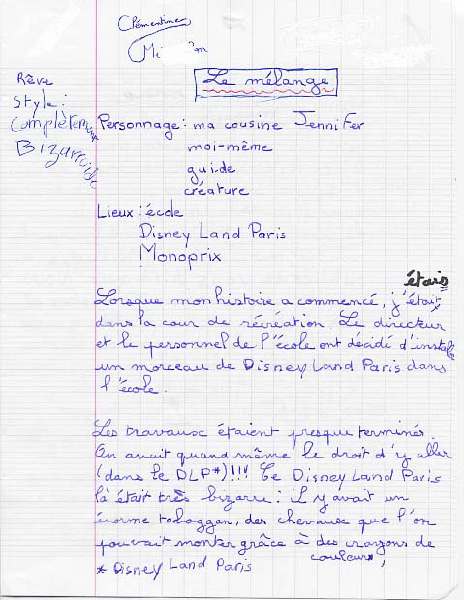 Clémentine
Le mélange
Rêve
Style :
Complètement
Bizarroïde
Personnage : ma cousine Jennifer
moi-même
guide
créature
Lieux : école
Disney Land Paris
Monoprix
étais
Lorsque mon histoire a commencé, j'était
dans la cour de récréation. Le directeur
et le personnel de l'école ont décidé d'installer
un morceau de Disney Land Paris dans
l'école.
Les travaux étaient presque terminés.
On avait quand même le droit d'y aller
(dans le DLP*)!!! Ce Disney Land Paris
là était très bizarre : Il y avait un
énorme toboggan, des chevaux que l'on
pouvait monter grâce à des crayons de
couleurs,
* Disney Land Paris